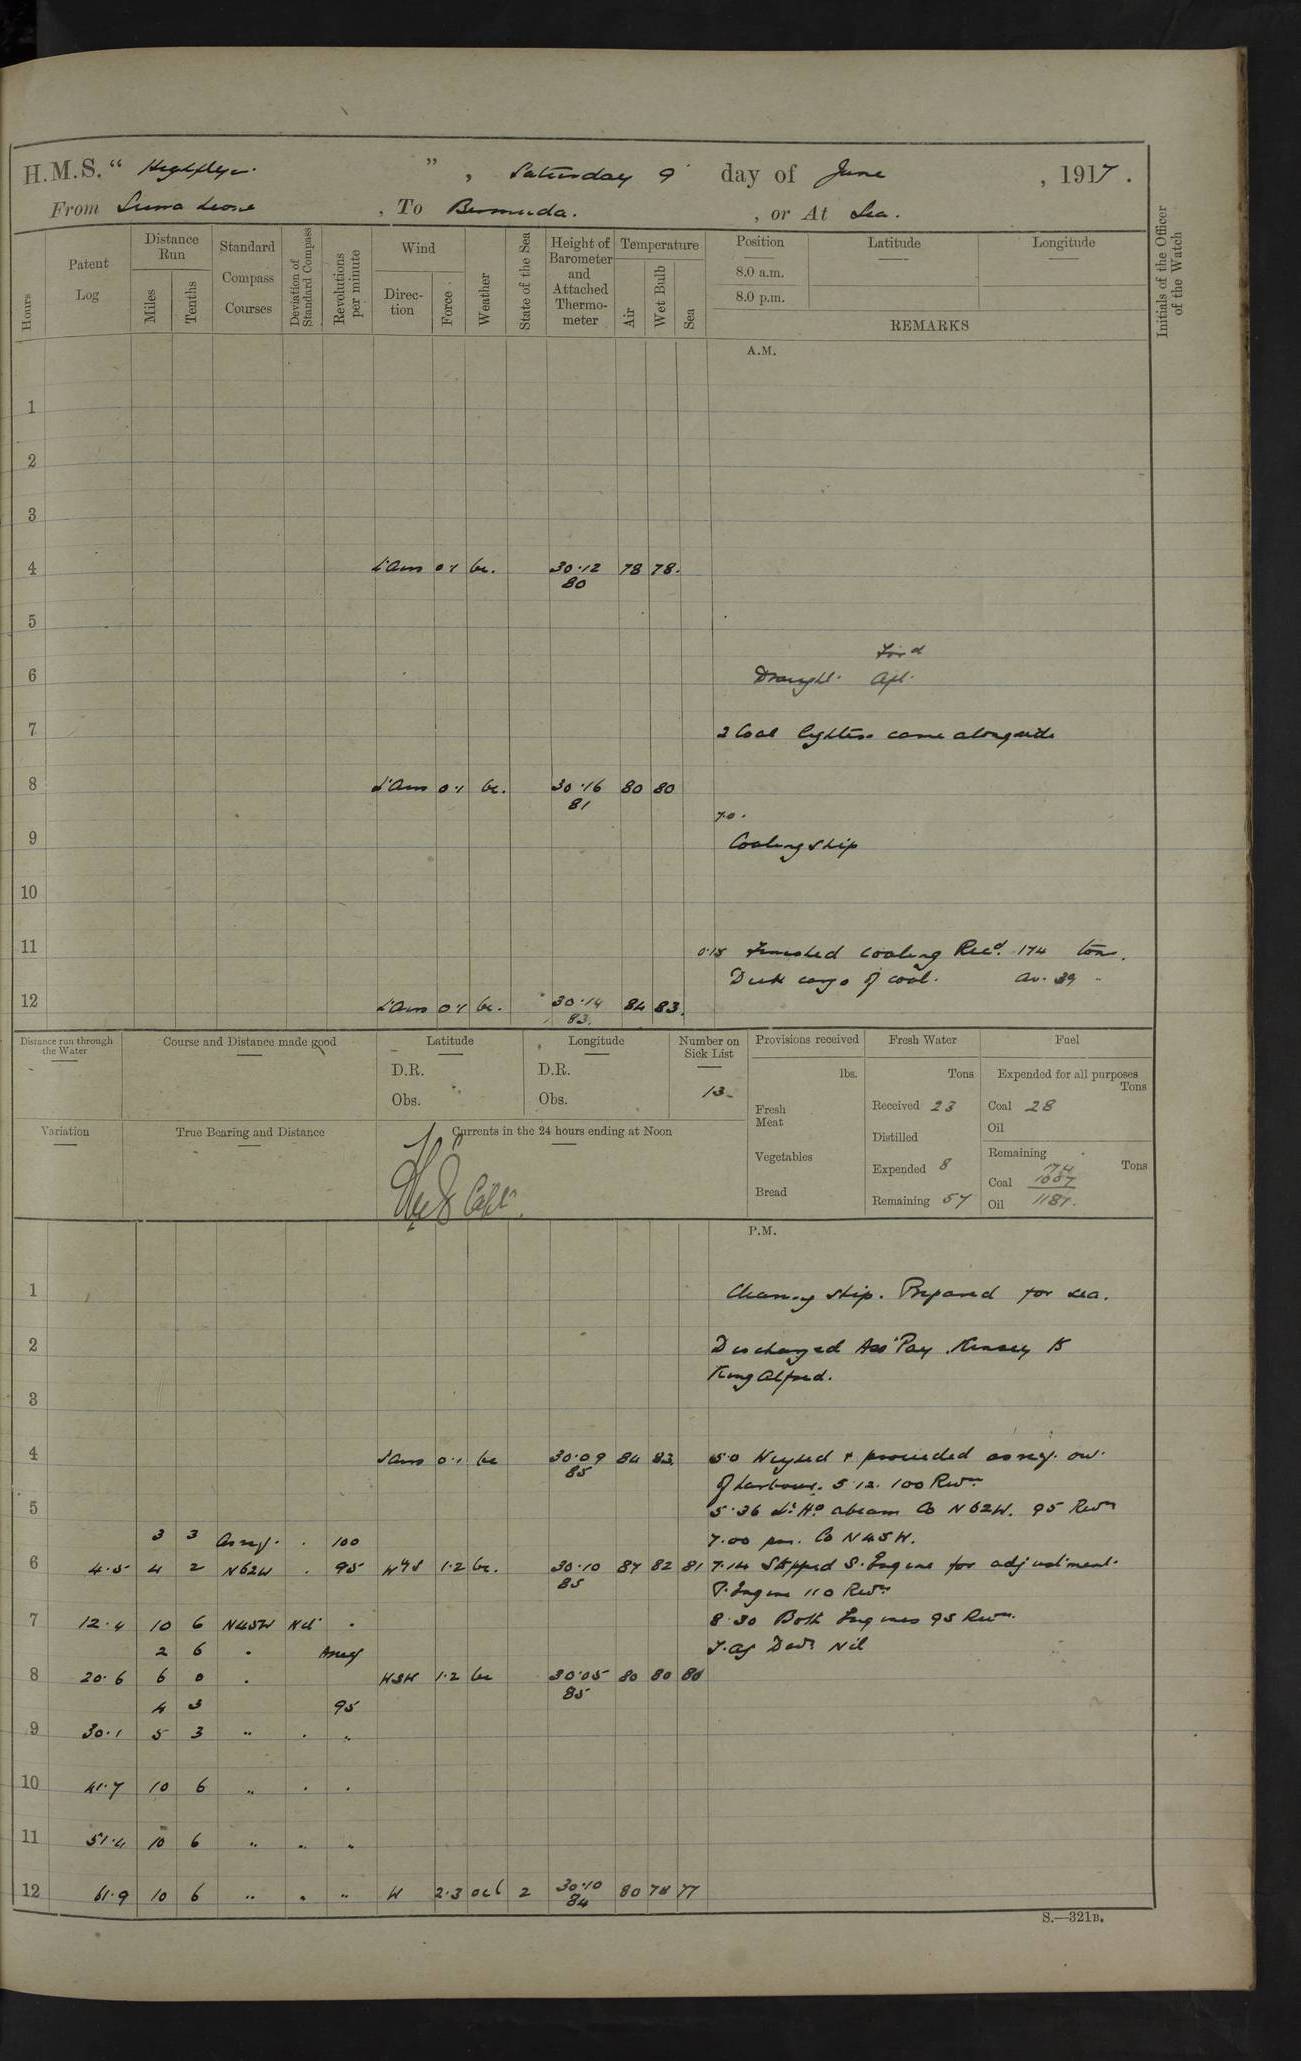 H.M.S. “ Highflyer ” , Saturday 9 day of June , 1917.
From Sierra Leone , To Bermuda. , or At Sea.
Hours
Patent Log
Distance Run
Miles
Tenths
Standard Compass Courses
Deviation of Standard Compass
Revolutions per minute
Wind
Direction
Force
Weather
State of the Sea
Height of Barometer and Attached Thermometer
Temperature
Air
Wet Bulb
Sea
Position
8.0 a.m.
8.0 p.m.
Latitude
Longitude
REMARKS
Initials of the Officer of the Watch
A.M.
1
2
3
4 30.12 78 78.
80
5
For'd
6 Draught. Aft.
7 2 Coal lighters came alongside
8 bc. 30.16 80 80
81
7.0.
9 Coaling ship
10
11 0.15 Finished coaling Recd. 174 tons.
Deck cargo of coal. Av. 39 "
12 bc. 30.14 84 83.
83.
Distance run through the Water
Course and Distance made good
Latitude
D.R.
Obs.
Longitude
D.R.
Obs.
Number on Sick List
13
Provisions received
lbs.
Fresh Meat
Vegetables
Bread
Fresh Water
Tons
Received 23
Distilled
Expended 8
Remaining 57
Fuel
Expended for all purposes
Tons
Coal 28
Oil
Remaining
Tons
Coal
Oil 1181.
Variation
True Bearing and Distance
Currents in the 24 hours ending at Noon
P.M.
1 Cleaning ship. Prepared for sea.
2 Discharged Ass Pay Kinsey to
King Alfred.
3
4 bc 30.09 84 83. 5.0 Weighed & proceeded as req. out
85 of harbour. 5.12. 100 Revs
5 5.36 Lt Ho abeam Co N62W. 95 Revs
3 3 As req. . 100 7.00 pm. Co N45W.
6 4.5 4 2 N62W . 95 W'S 1.2 bc. 30.10 87 82 81 7.14 Stopped S. Engine for adjustment.
85 P. Engine 110 Revs
7 12.4 10 6 N45W Nil . 8.30 Both Engines 95 Revs.
2 6 . As req Devn Nil
8 20.6 6 0 . WSW 1.2 bc 30.05 80 80 80
85
4 3 95
9 30.1 5 3 " . "
10 41.7 10 6 " . .
11 51.4 10 6 " " "
12 61.9 10 6 " " " W 2.3 2 30.10 80 78 77
84
S.—321B.